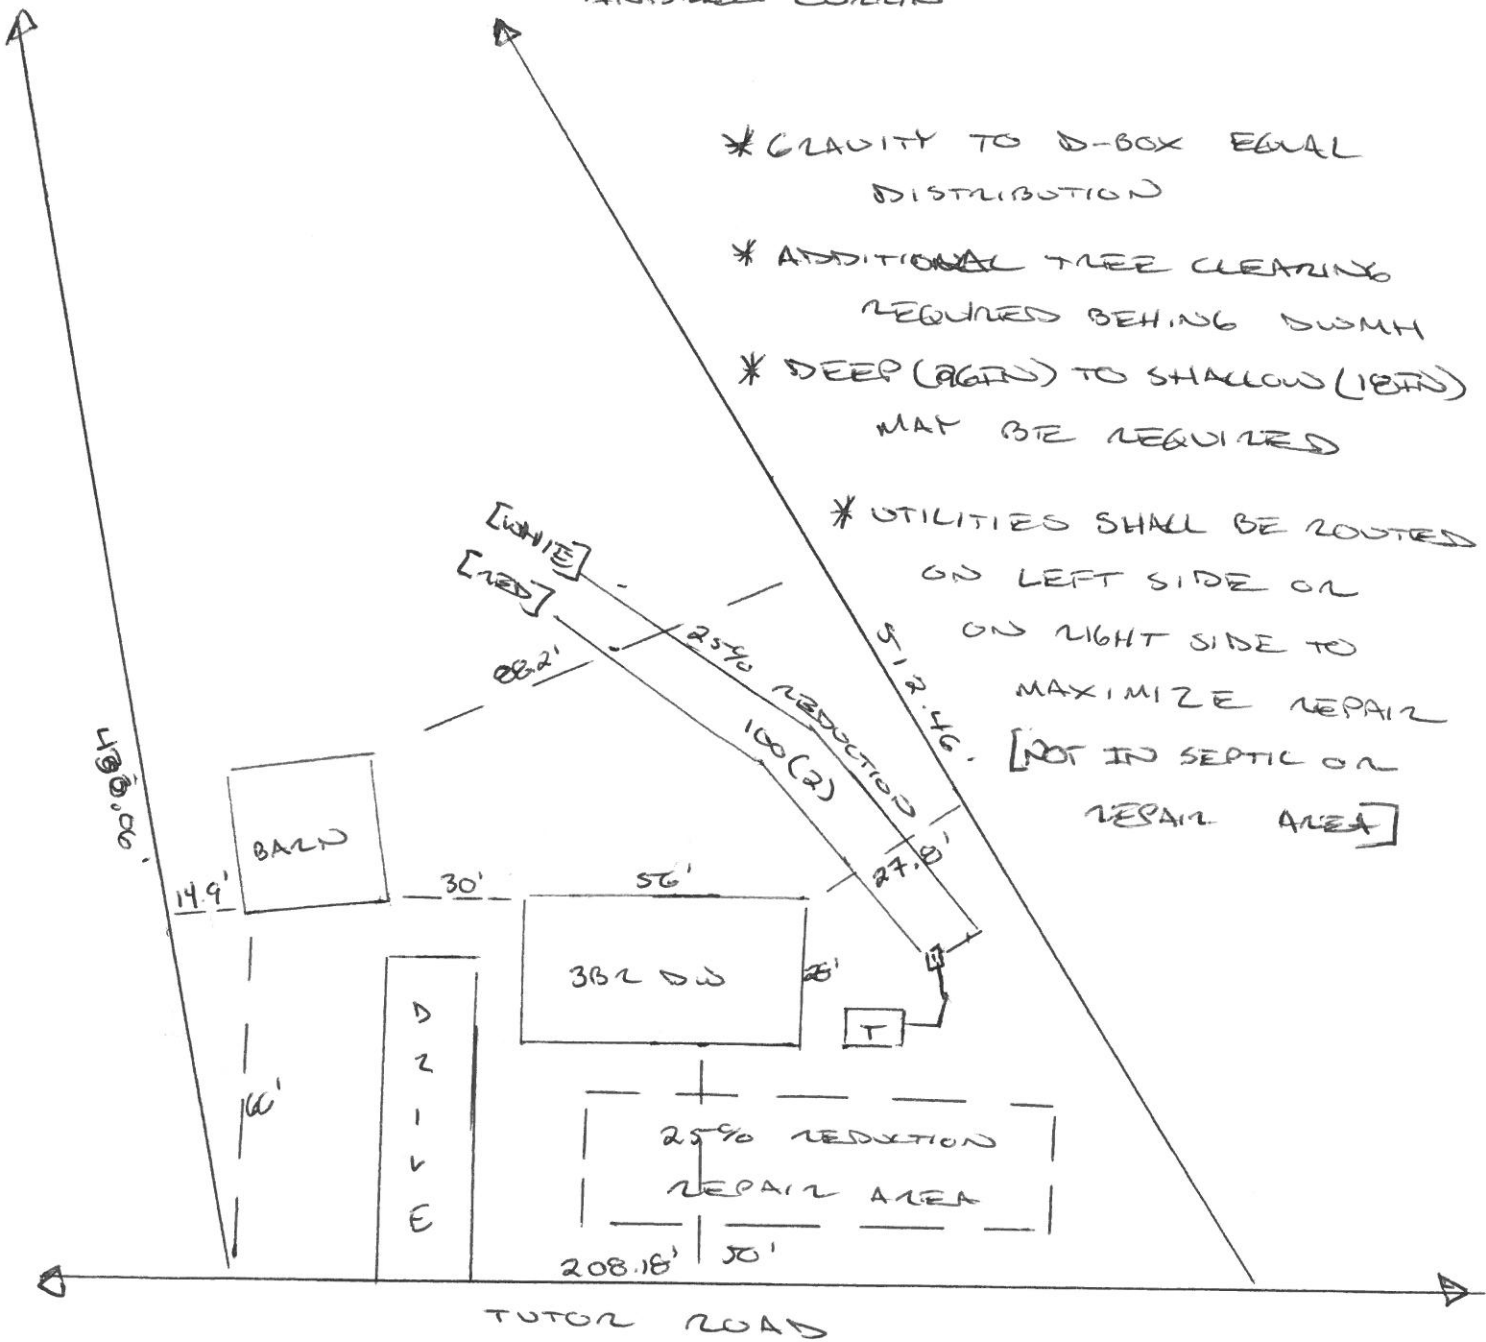 * GRAVITY TO D-BOX EQUAL
DISTRIBUTION
* ADDITIONAL TREE CLEARING
REQUIRED BEHING DWMH
* DEEP (36IN) TO SHALLOW (18IN)
MAY BE REQUIRED
* UTILITIES SHALL BE ROUTED
ON LEFT SIDE OR
ON RIGHT SIDE TO
MAXIMIZE REPAIR
[NOT IN SEPTIC OR
REPAIR AREA]
[WHITE]
[RED]
88.2'
25% REDUCTION
100(2)
512.46'
27.8'
BARN
14.9'
30'
56'
3BR DW
T
DRIVE
66'
25% REDUCTION
REPAIR AREA
208.18'
50'
TUTOR ROAD